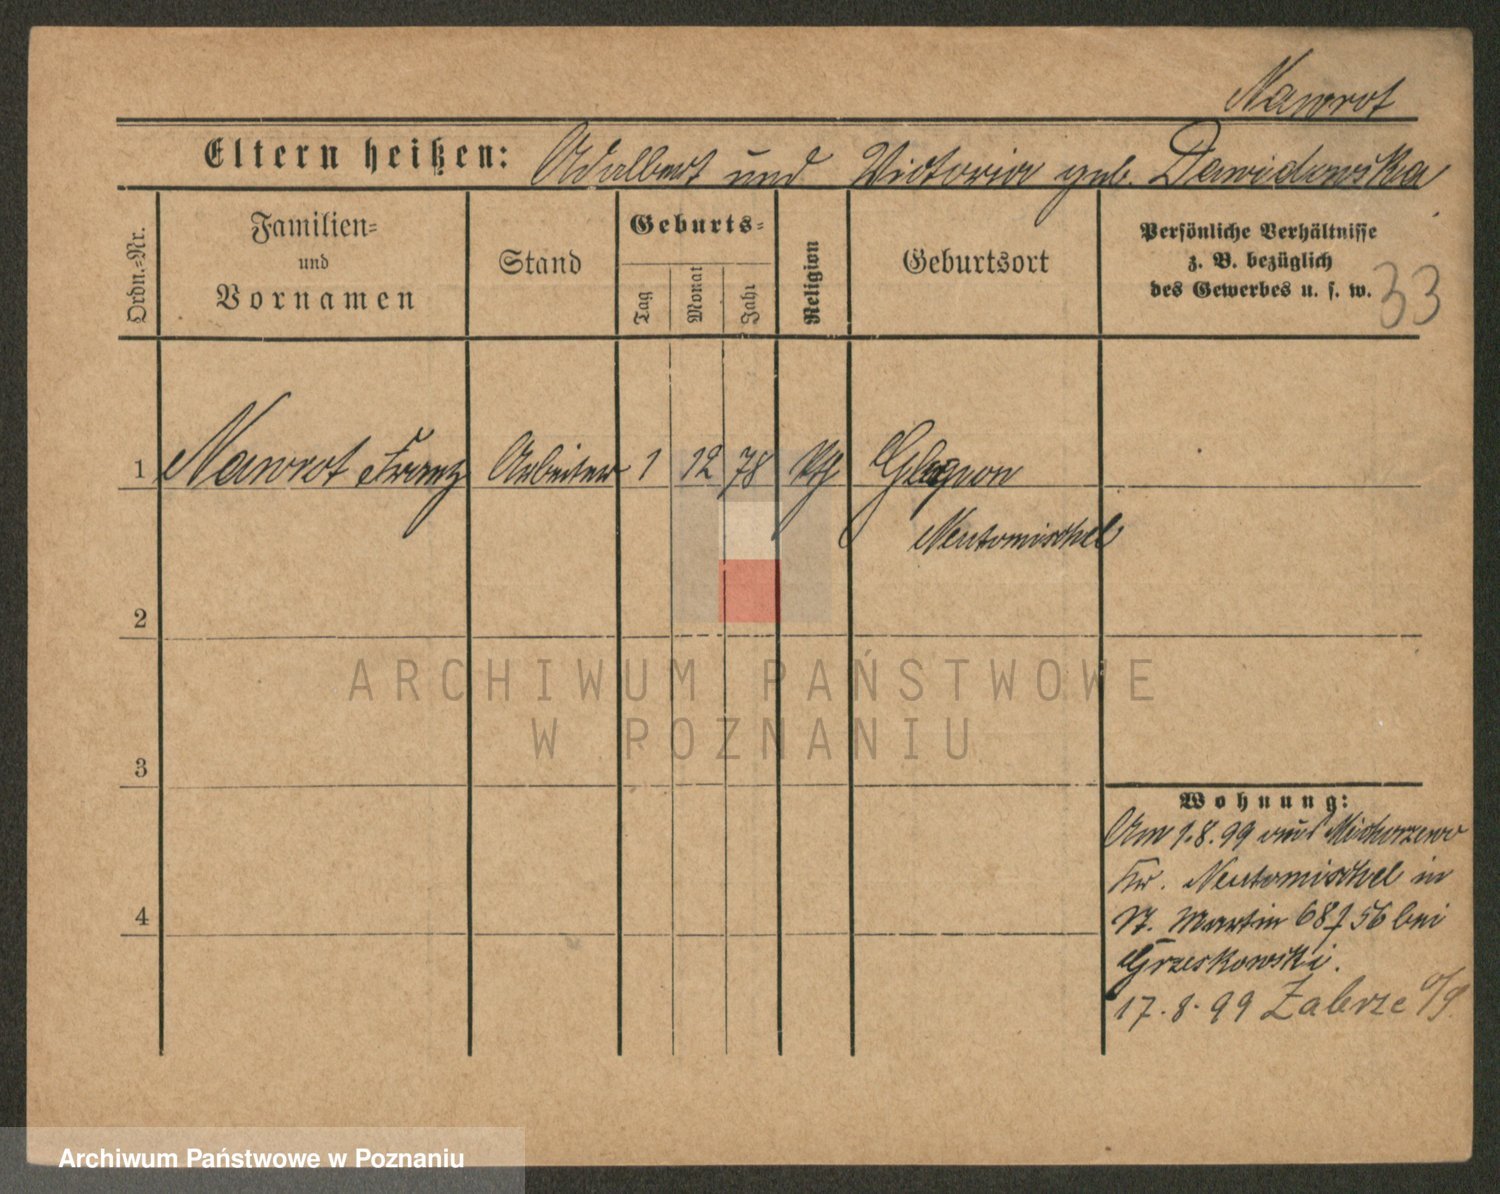 Nawrot
Eltern heißen: Adalbert und Victoria geb. Dawidowska
Ordn.-Nr.
Familien-
und
Vornamen
Stand
Geburts-
Tag
Monat
Jahr
Religion
Geburtsort
Persönliche Verhältnisse
z. B. bezüglich
des Gewerbes u. s. w.
33
1 Nawrot Franz Arbeiter 1 12 78
Neutomischel
2
3
4
Wohnung:
Am 1.8.99 aus Michorzewo
Kr. Neutomischel in
St. Martin 68 56 bei
Grzeskowski.
17.8.99 Zabrze o/S.
ARCHIWUM PAŃSTWOWE
W POZNANIU
Archiwum Państwowe w Poznaniu